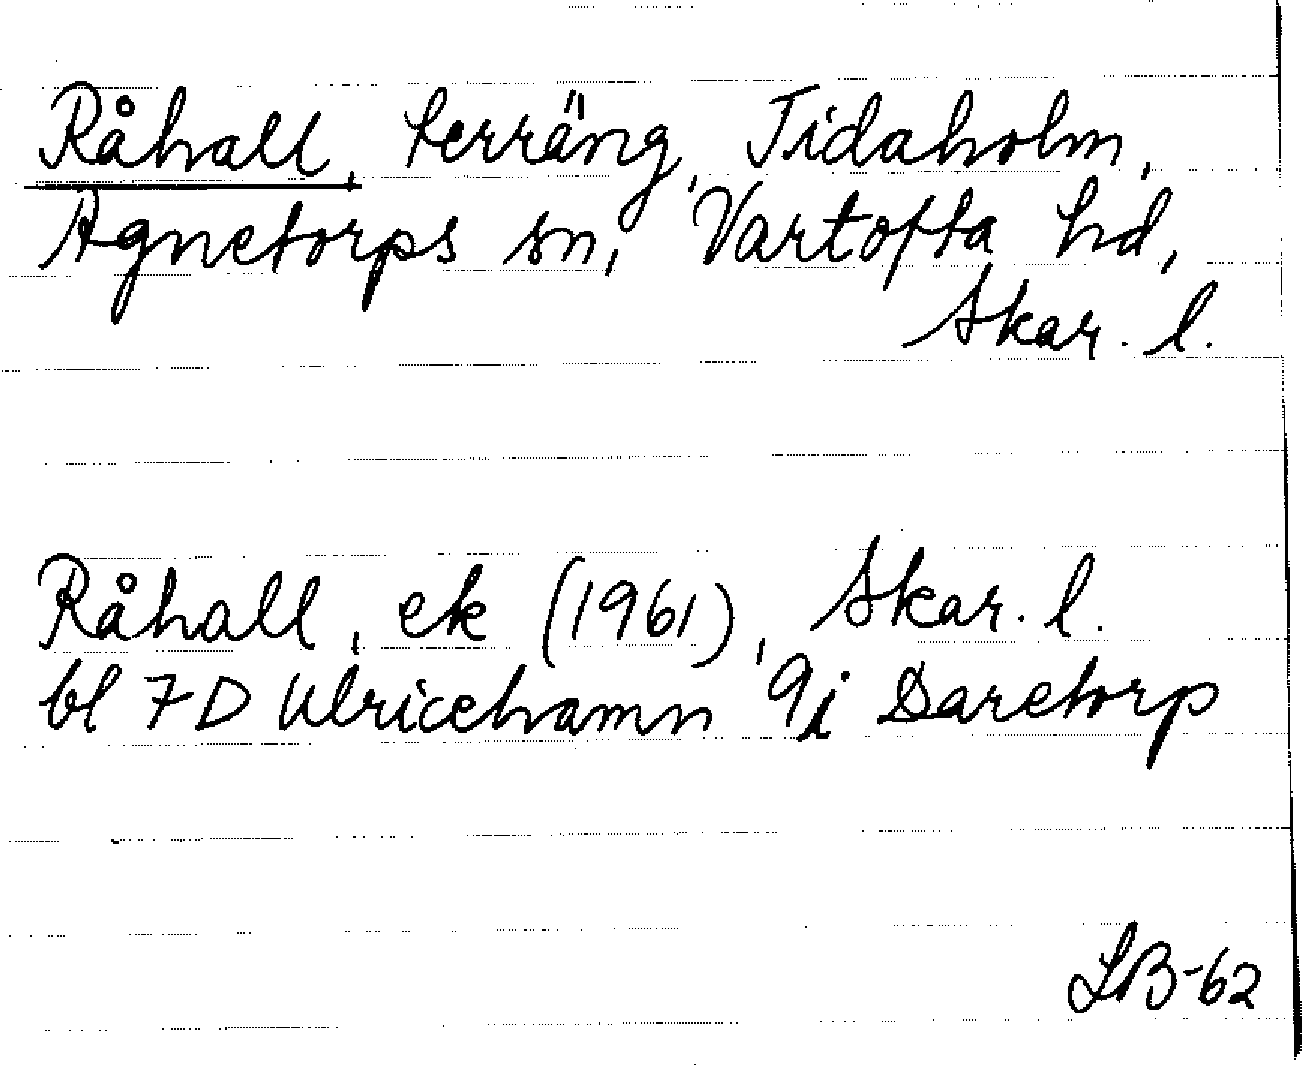 Råhall, terräng, Tidaholm,
Agnetorps sn, Vartofta hd,
Skar. l.
Råhall, ek (1961), Skar. l.
bl 7D Ulricehamn 9j Daretorp
LB-62